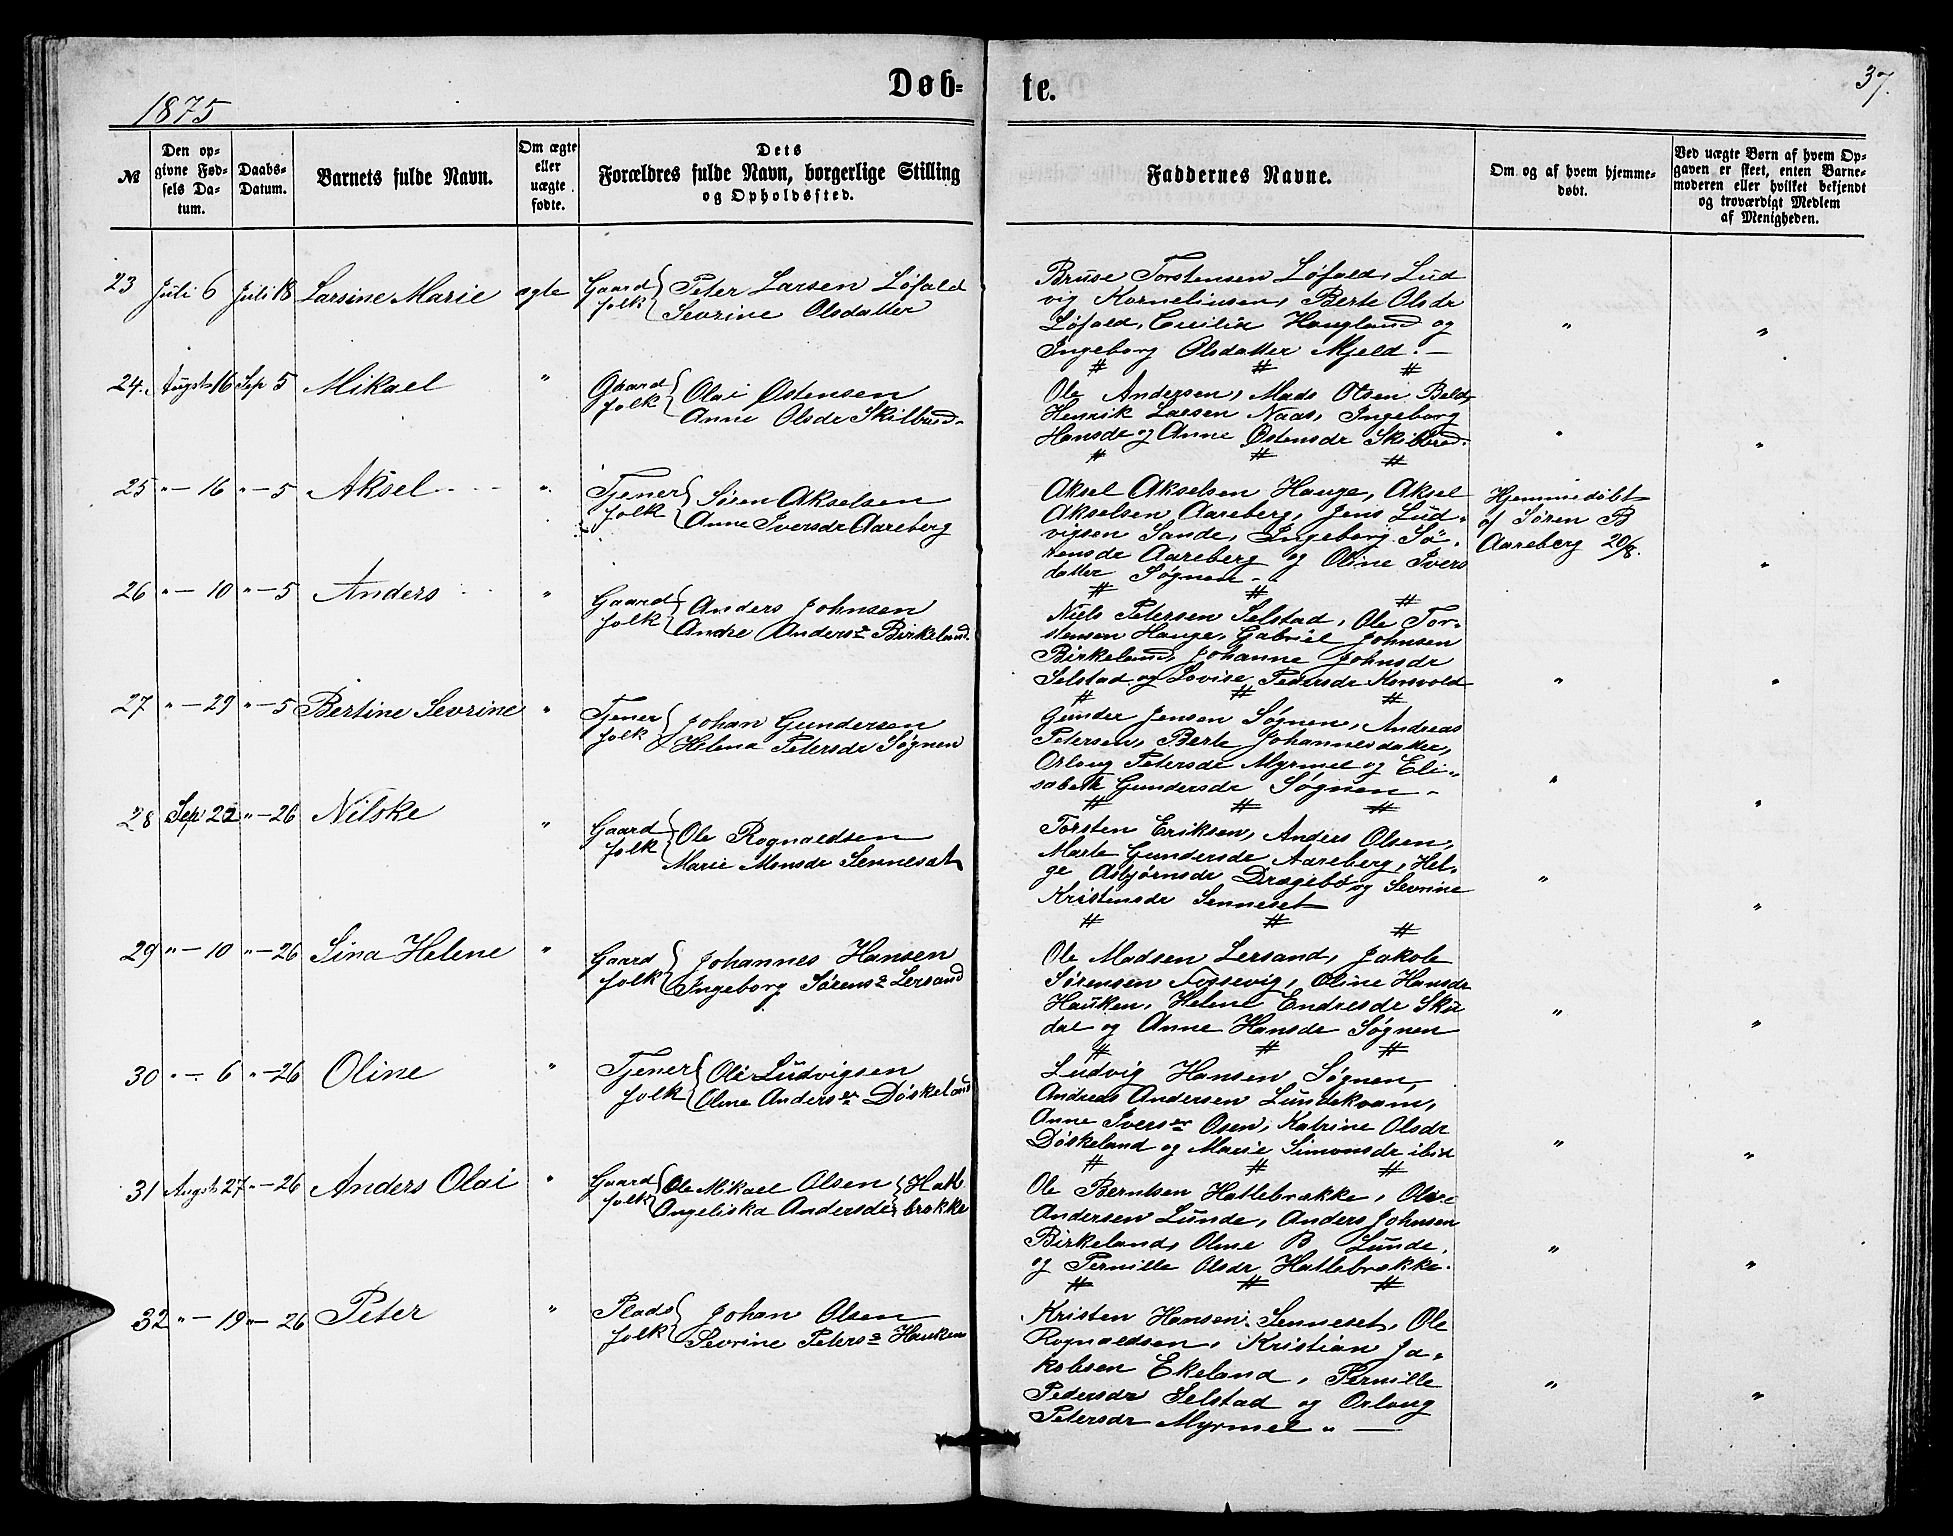 1875
Døb-
te.
37.
№
Den op-
givne Fød-
sels Da-
tum.
Daabs-
Datum.
Barnets fulde Navn.
Om ægte
eller
uægte
fødte.
Dets
Forældres fulde Navn, borgerlige Stilling
og Opholdssted.
Faddernes Navne.
Om og af hvem hjemme-
døbt.
Ved uægte Børn af hvem Op-
gaven er skeet, enten Barne-
moderen eller hvilket bekjendt
og troværdigt Medlem
af Menigheden.
23 Juli 6 Juli 18 Larsine Marie ægte
Gaard
folk
Peter Larsen Løfald
Sevrine Olsdatter
Bruse Torstensen Løfald, Lud
vig Korneliusen, Berte Olsdr
Løfald, Cecilia Haugland og
Ingeborg Olsdatter Mjeld. —
24. Augst 16 Sep 5 Mikael "
Gaard
folk
Olai Østensen
Anne Olsdr Skilbred.
Ole Andersen, Mads Olsen Beld,
Henrik Larsen Naas, Ingeborg
Hansdr og Anne Østensdr Skilbred.
25 " — 16 " — 5 Aksel "
Tjener
folk
Søren Akselsen
Anne Iversdr Aareberg
Aksel Akselsen Hauge, Aksel
Akselsen Aareberg, Jens Lud-
vigsen Sande, Ingeborg Sø-
rensdr Aareberg og Oline Ivers
datter Søgnen —
Hjemmedøbt
af Søren B
Aareberg 20/8.
26 " — 10 " — 5 Anders "
Gaard
folk
Anders Johnsen
Andre Anders Birkeland.
Niels Petersen Selstad, Ole Tor-
stensen Hauge, Gabriel Johnsen
Birkeland, Johanne Johnsdr
Selstad og Lovise Pedersdr Korsvold
27 " — 29 " — 5 Bertine Sevrine "
Tjener
folk
Johan Gundersen
Helena Petersdr Søgnen
Gunder Jensen Søgnen, Andreas
Petersen, Berte Johannesdatter,
Orloug Petersdr Myrmel og Eli-
sabeth Gundersdr Søgnen —
28 Sep " — 26 Nilske "
Gaard
folk
Ole Rognaldsen
Marie Monsdr Senneset
Torsten Eriksen, Anders Olsen,
Marte Gundersdr Aareberg, Hel-
ge Asbjørnsdr Dragebø og Sevrine
Kristensdr Senneset
29 " — 10 " — 26 Sina Helene "
Gaard
folk
Johannes Hansen
Ingeborg Sørens Lersand
Ole Madsen Lersand, Jakob
Sørensen Fossevig, Oline Hansdr
Hauken, Helene Endresdr Sku
dal og Anne Hansdr Søgnen
30 " — 6 " — 26 Oline "
Tjener
folk
Ole Ludvigsen
Oline Anders Døskeland
Ludvig Hansen Søgnen,
Andreas Andersen Lundekvam,
Anne Ivers Osen, Katrine Olsdr
Døskeland og Marie Simonsdr ibid
31 Augst 27 " — 26 Anders Olai "
Gaard
folk
Ole Mikael Olsen
Angeliska Andersdr
Hatle
brække
Ole Berntsen Hatlebrække, Oline
Andersen Lunde, Anders Johnsen
Birkeland, Oline B Lunde,
og Pernille Olsdr Hatlebrække.
32 " — 19 " — 26 Peter "
Plads
folk
Johan Olsen
Sevrine Peters Hauken
Kristen Hansen Senneset, Ole
Rognaldsen, Kristian Ja-
kobsen Ekeland, Pernille
Pedersdr Selstad og Orloug
Petersdr Myrmel " —